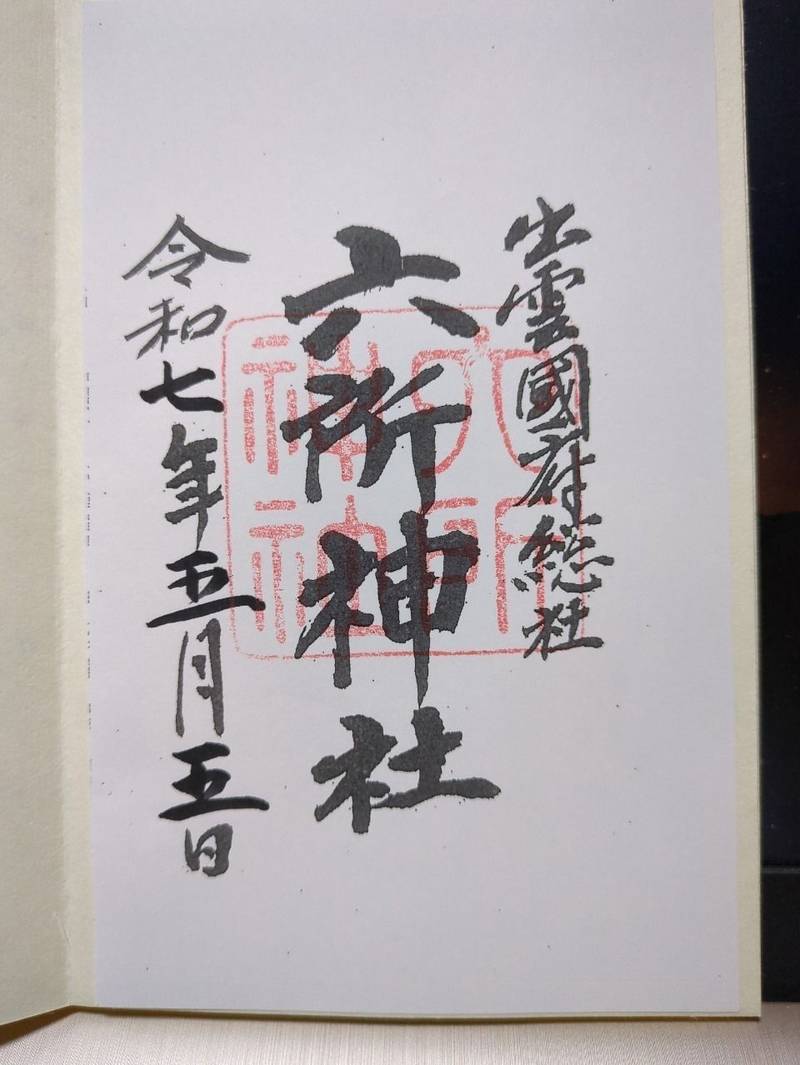 出雲國府総社
六所神社
六所神社
令和七年五月五日